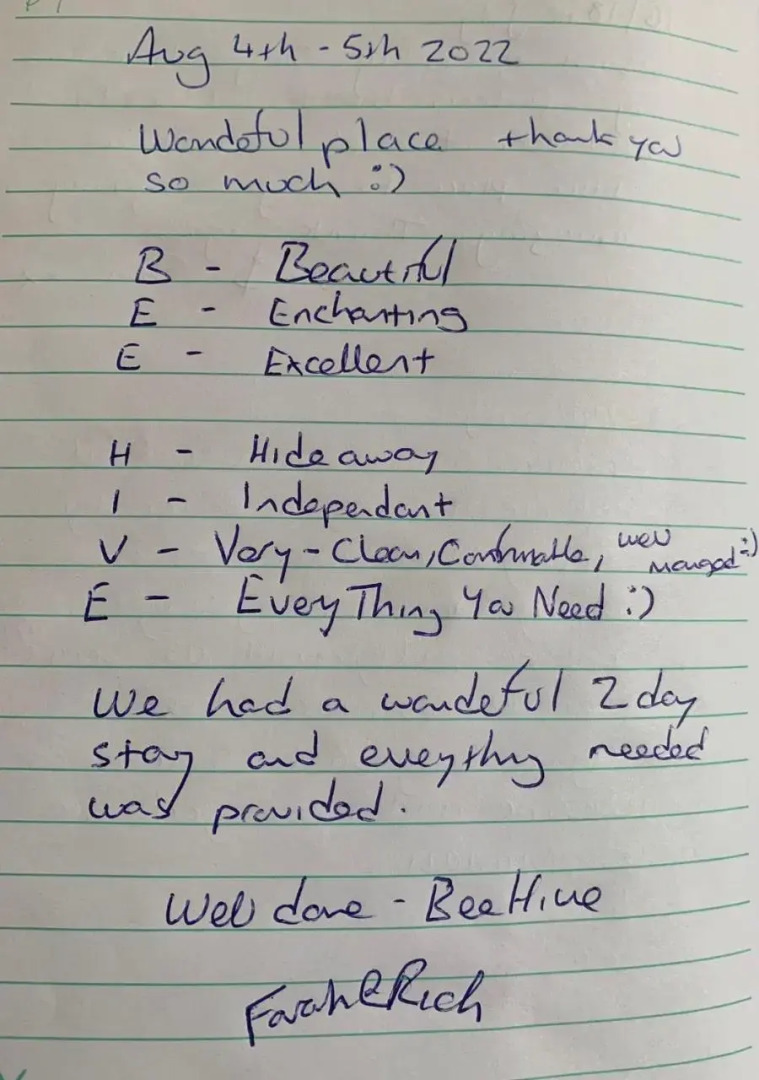 Aug 4th - 5th 2022
Wondeful place thank you
so much :)
B - Beautiful
E - Enchanting
E - Excellent
H - Hideaway
I - Independant
V - Very - Clean, Comfortable, well managed :)
E - Every Thing You Need :)
We had a wondeful 2 day
stay and eveything needed
was provided.
Well done - BeeHive
Farah & Rich